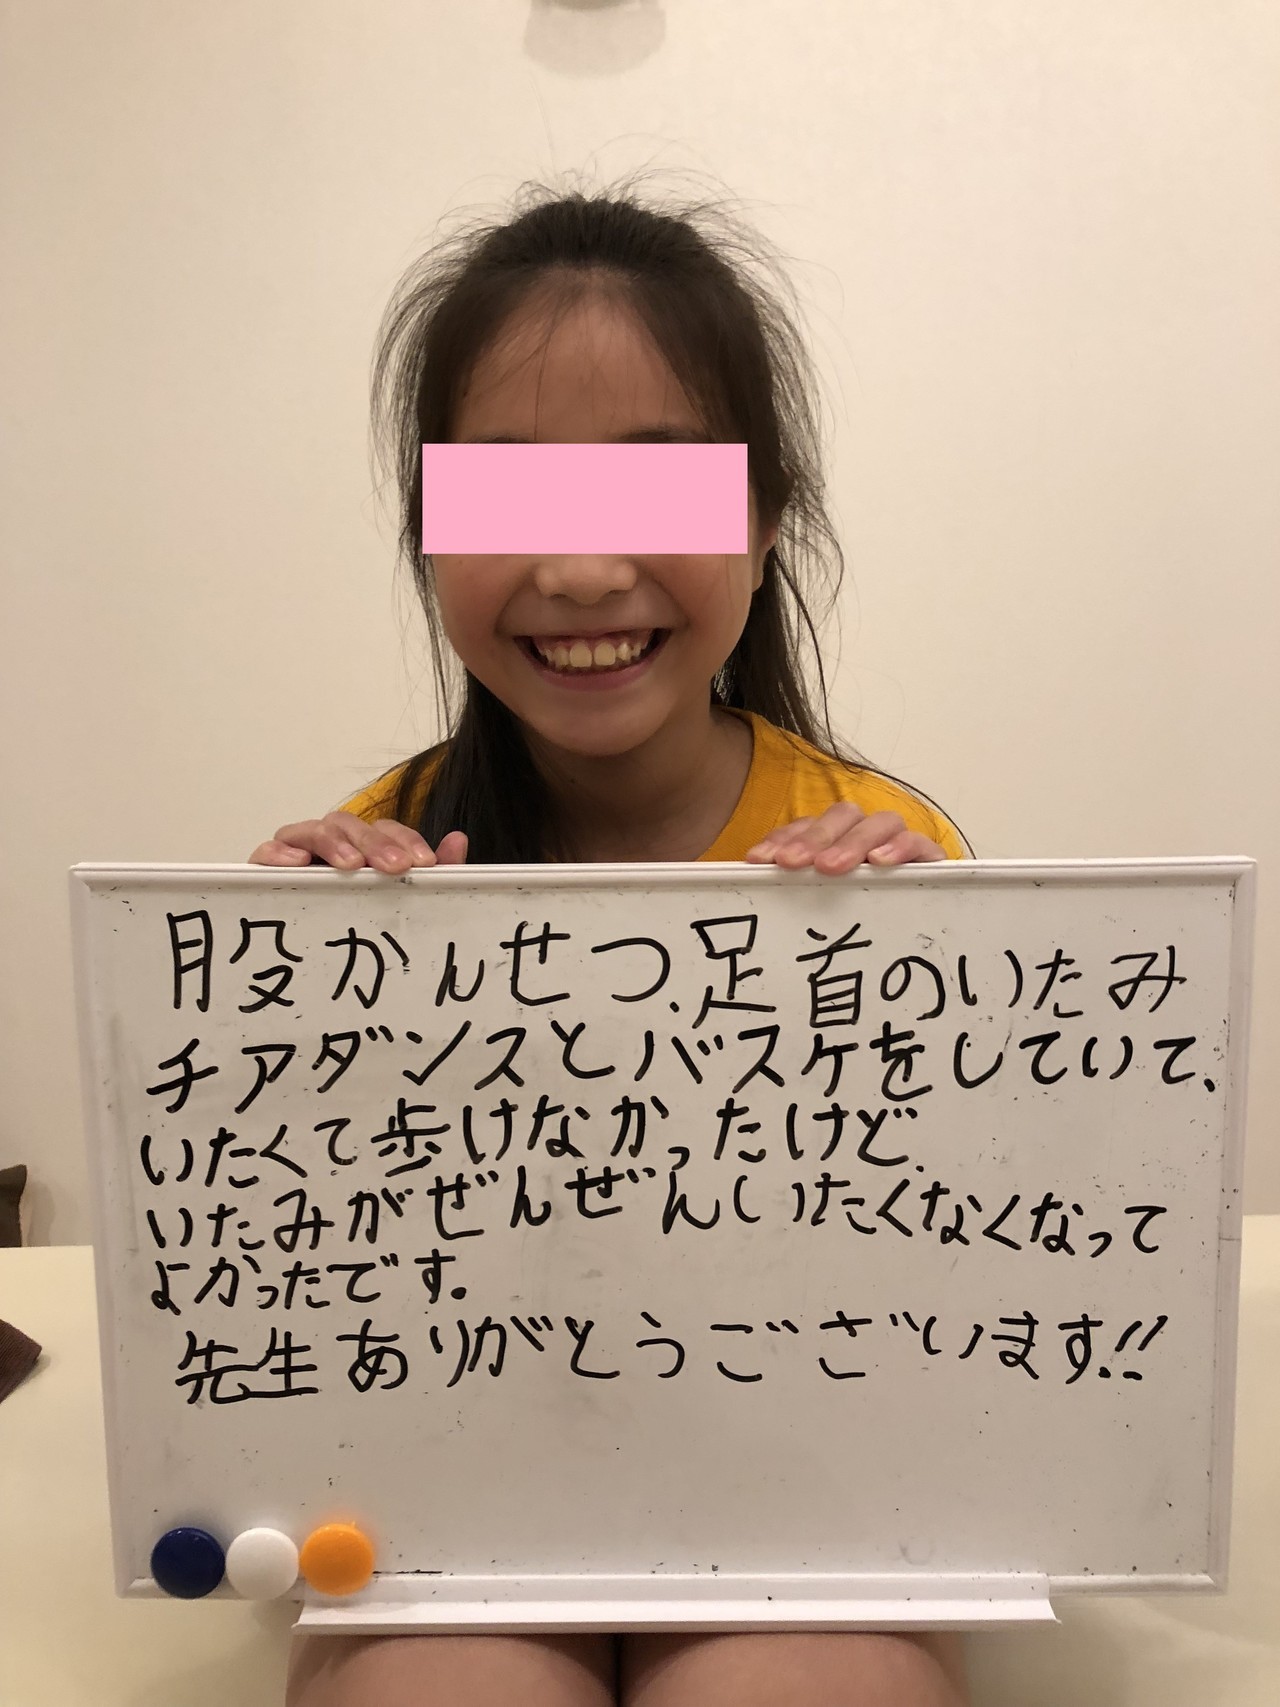 股かんせつ、足首のいたみ
チアダンスとバスケをしていて、
いたくて歩けなかったけど、
いたみがぜんぜんいたくなくなって
よかったです。
先生ありがとうございます!!